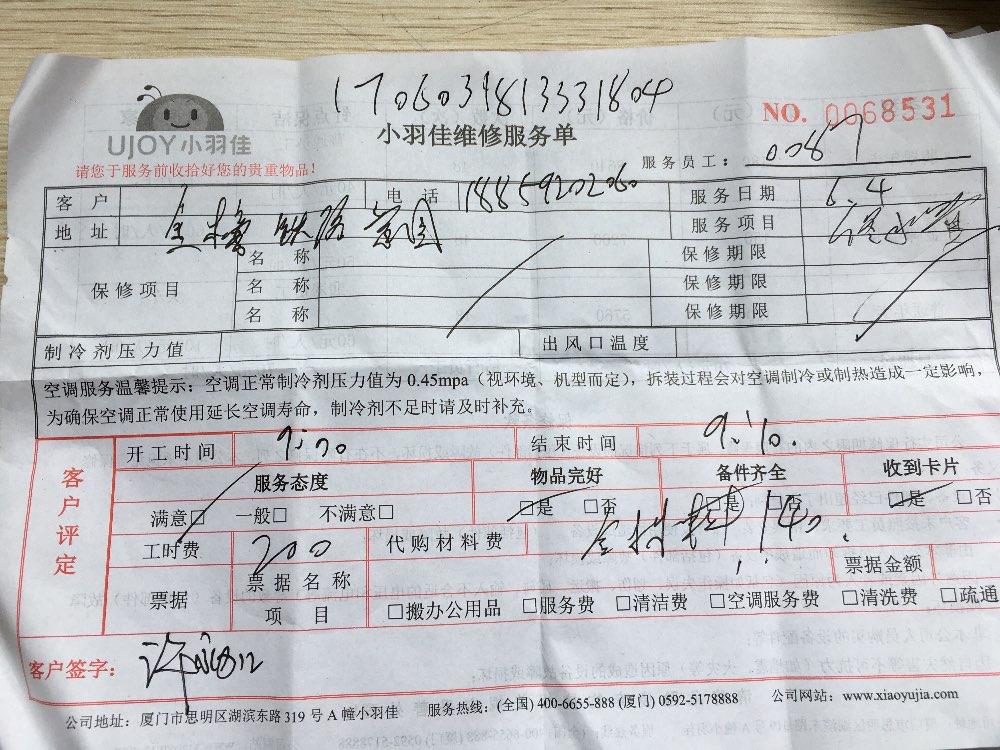 1706039813331804
UJOY小羽佳
小羽佳维修服务单
NO. 0068531
请您于服务前收拾好您的贵重物品!
服务员工: 0087
客户 电话 18859202060 服务日期 6.4
地址 铁路 服务项目
保修项目 名称 保修期限
名称 保修期限
名称 保修期限
制冷剂压力值 出风口温度
空调服务温馨提示:空调正常制冷剂压力值为 0.45mpa(视环境、机型而定),拆装过程会对空调制冷或制热造成一定影响,
为确保空调正常使用延长空调寿命,制冷剂不足时请及时补充。
客户评定
开工时间 9:00 结束时间 9:10.
服务态度 物品完好 备件齐全 收到卡片
满意□ 一般□ 不满意□ □是 □否 □是 □否 □是 □否
工时费 200 代购材料费
票据 票据名称 票据金额
项目 □搬办公用品 □服务费 □清洁费 □空调服务费 □清洗费 □疏通
客户签字:
公司地址:厦门市思明区湖滨东路 319 号 A 幢小羽佳 服务热线:(全国) 400-6655-888 (厦门) 0592-5178888 公司网站:www.xiaoyujia.com